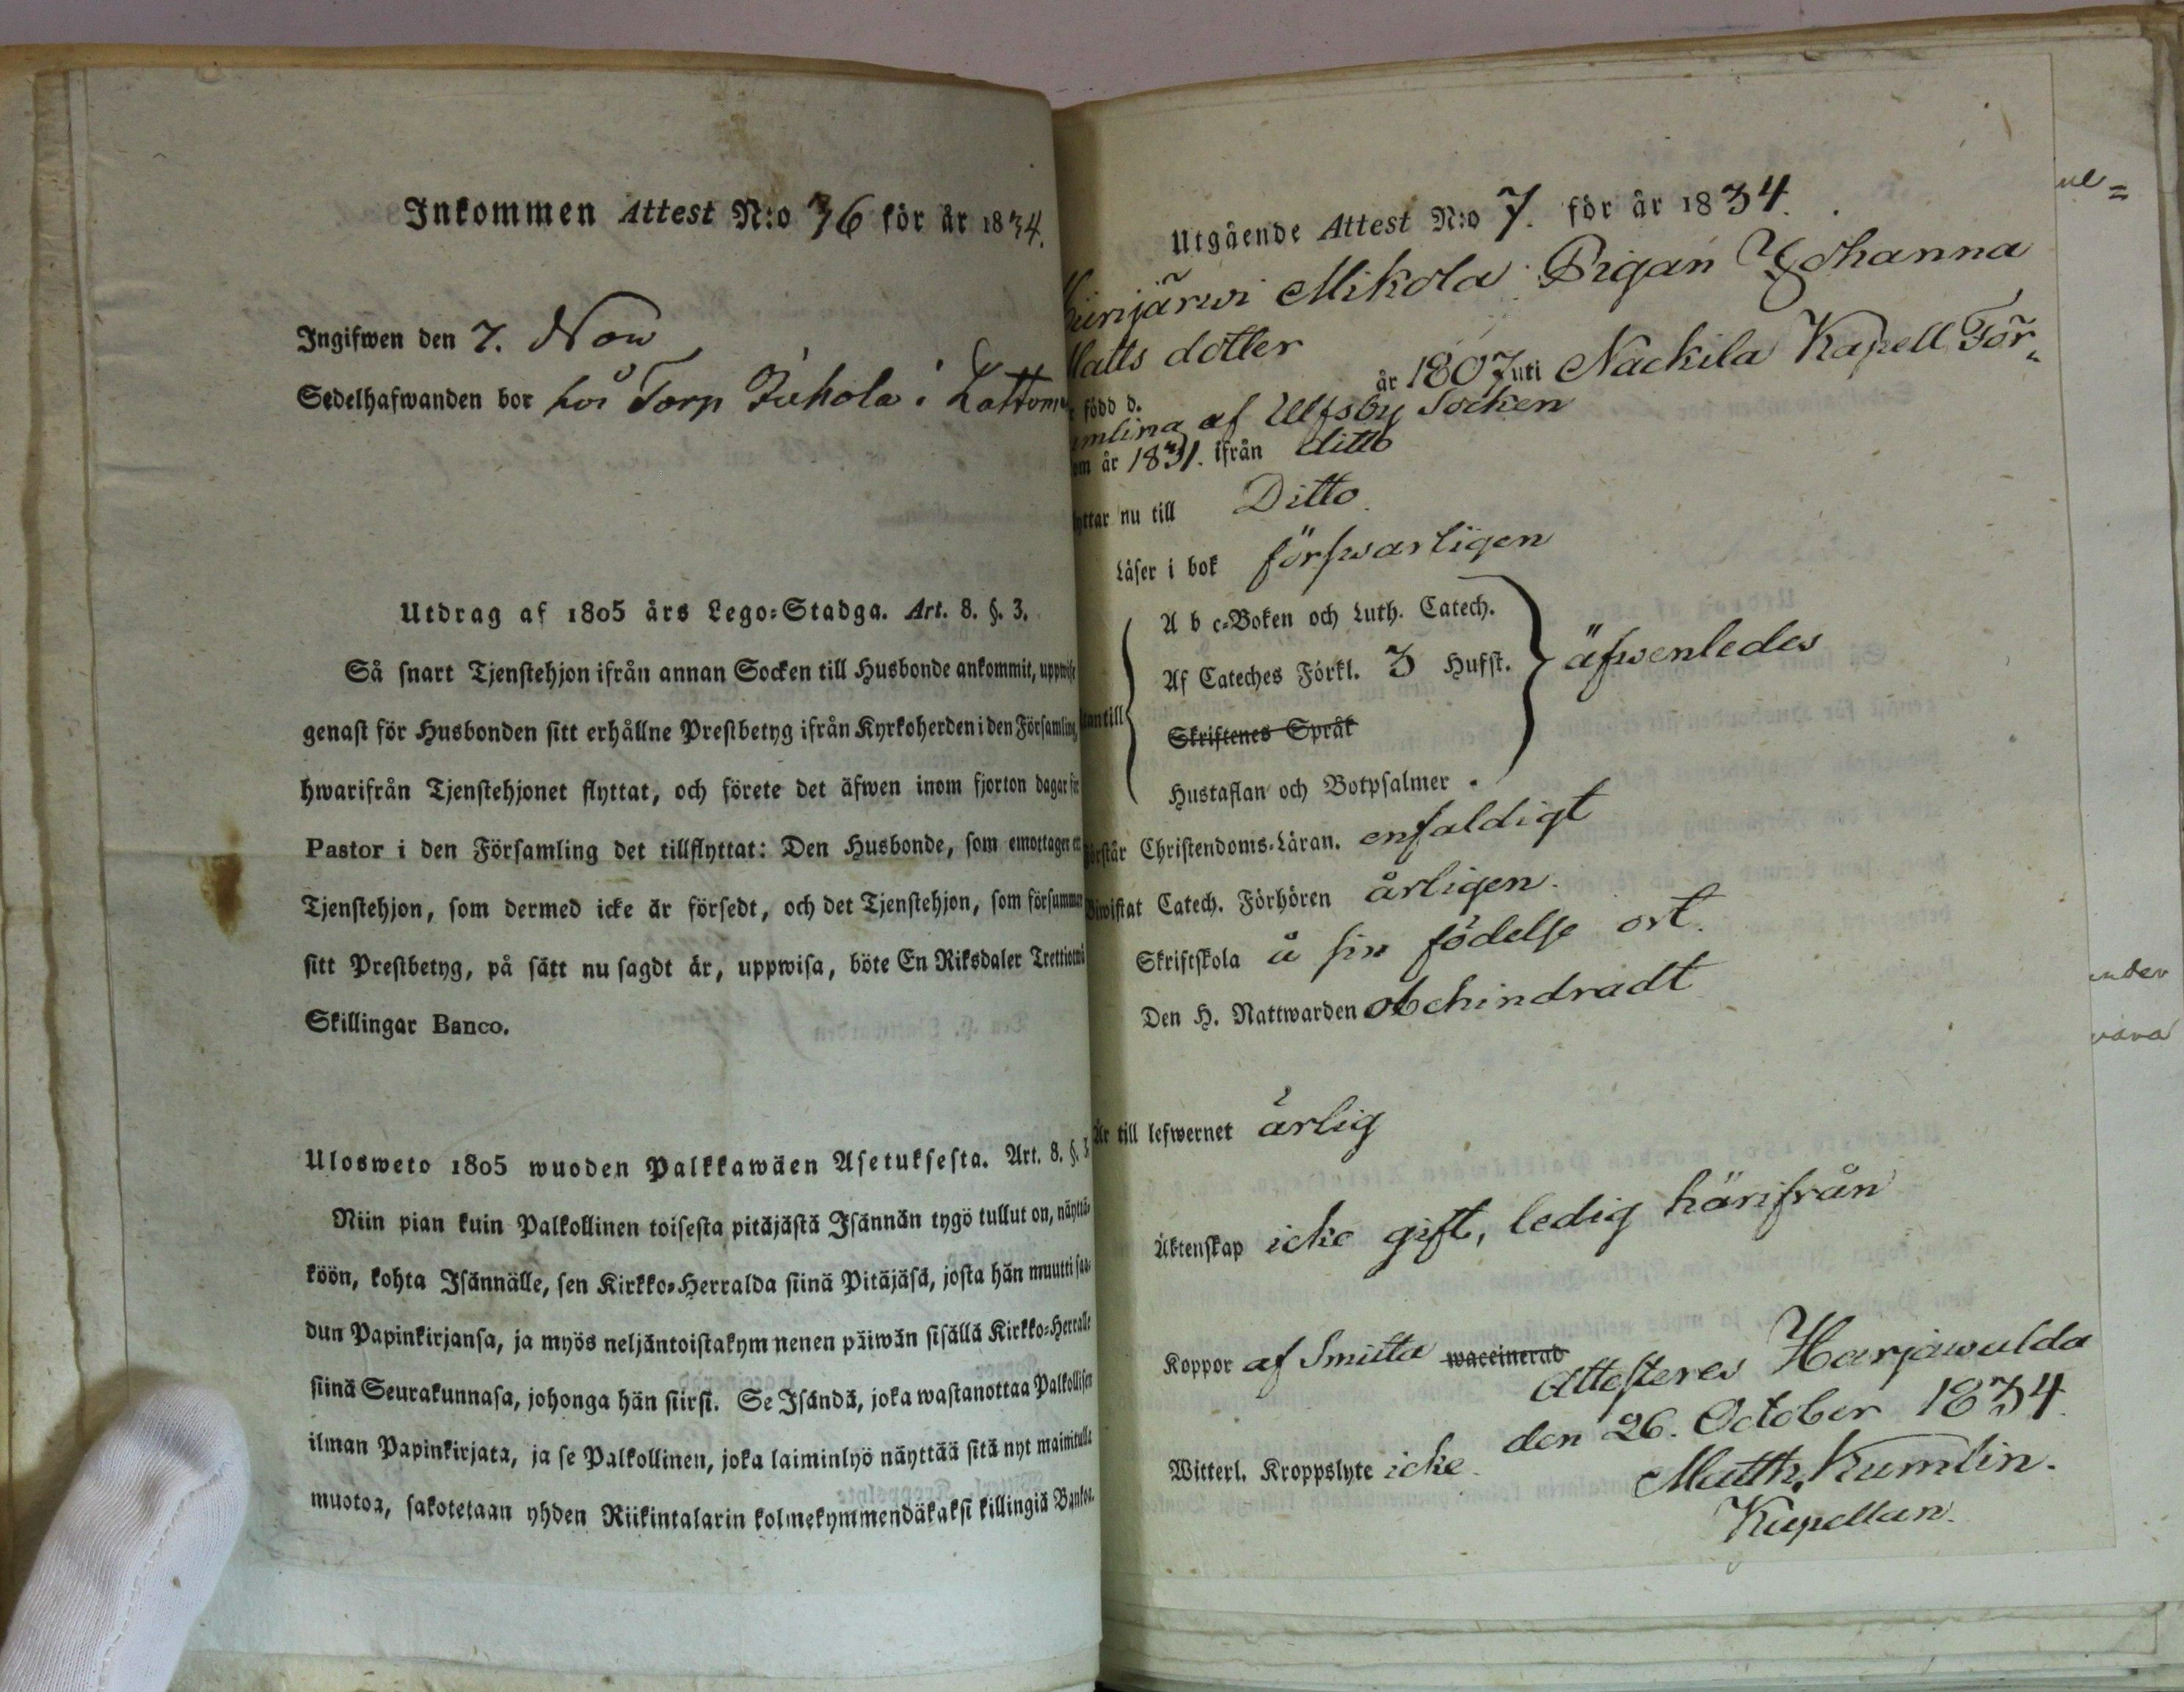 Inkommen Attest N:o 76 för år 1834.
Ingifwen den 7. Nov
Sedelhafwanden bor på Torp Juhola i Lattom
Utdrag af 1805 års Lego-Stadga. Art. 8. §. 3.
Så snart Tjenstehjon ifrån annan Socken till Husbonde ankommit, uppwise
genast för Husbonden sitt erhållne Prestbetyg ifrån Kyrkoherden i den Församling
hwarifrån Tjenstehjonet flyttat, och förete det äfwen inom fjorton dagar för
Pastor i den Församling det tillflyttat: Den Husbonde, som emottager ett
Tjenstehjon, som dermed icke är försedt, och det Tjenstehjon, som försummar
sitt Prestbetyg, på sätt nu sagdt är, uppwisa, böte En Riksdaler Trettiotwå
Skillingar Banco.
Ulosweto 1805 wuoden Palkkawäen Asetuksesta. Art. 8. §. 3
Niin pian kuin Palkollinen toisesta pitäjästä Isännän tygö tullut on, näyttä-
köön, kohta Isännälle, sen Kirkko-Herralda siinä Pitäjäsä, josta hän muutti saa-
dun Papinkirjansa, ja myös neljäntoistakym nenen päiwän sisällä Kirkko-Herralle
siinä Seurakunnasa, johonga hän siirsi. Se Isändä, joka wastanottaa Palkollisen
ilman Papinkirjata, ja se Palkollinen, joka laiminlyö näyttää sitä nyt mainitulla
muotoa, sakotetaan yhden Riikintalarin kolmekymmendäkaksi killingiä Bankos.
Utgående Attest N:o 7. för år 1834.
injärwi Mikola Pigan Johanna
Matts dotter
född d. år 1807 uti Nackila Kapell För-
amling af Ulfsby Socken
om år 1831. ifrån ditto
yttar nu till Ditto.
Läser i bok förswarligen
A b c-Boken och Luth. Catech.
Af Cateches Förkl. 3 Hufst. äfwenledes
utantill
Skriftenes Språk
Hustaflan och Botpsalmer.
Förstår Christendoms-Läran. enfaldigt
Biwistat Catech. Förhören årligen.
Skriftskola å sin födelse ort.
Den H. Nattwarden obehindradt
Är till lefwernet ärlig
Äktenskap icke gift, ledig härifrån
Koppor af Smitta waccinerad
Attesteres Harjawalda
den 26. October 1834.
Witterl. Kroppslyte icke.
Matth. Kumlin.
Kapellan.
ul=
under
vara